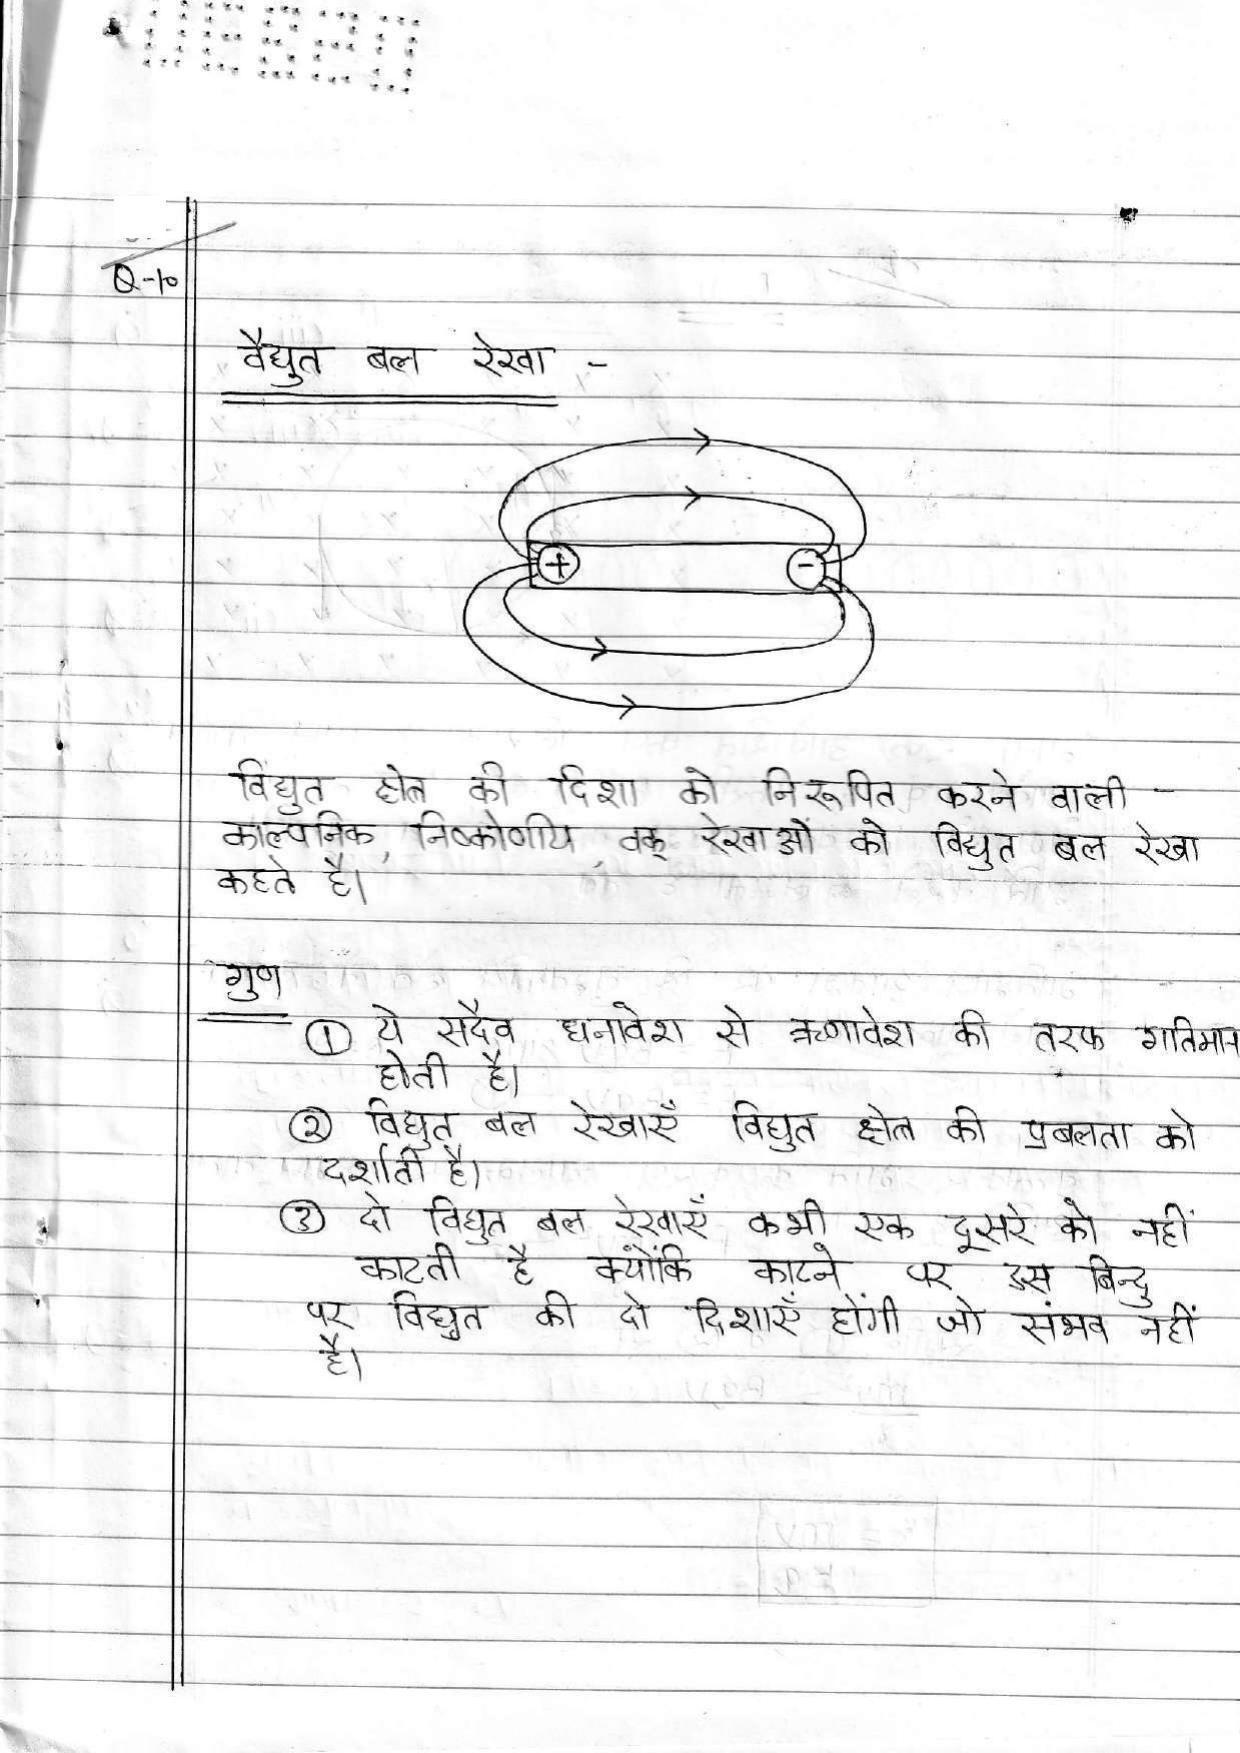 Q-10
वैद्युत बल रेखा -
+
-
विद्युत क्षेत्र की दिशा को निरूपित करने वाली -
काल्पनिक, निष्कोणीय, वक्र रेखाओं को विद्युत बल रेखा
कहते है।
गुण
① ये सदैव धनावेश से ऋणावेश की तरफ गतिमान
होती है।
② विद्युत बल रेखाएँ विद्युत क्षेत्र की प्रबलता को
दर्शाती है।
③ दो विद्युत बल रेखाएँ कभी एक दूसरे को नहीं
काटती है क्योंकि काटने पर उस बिन्दु
पर विद्युत की दो दिशाएँ होंगी जो संभव नहीं
है।